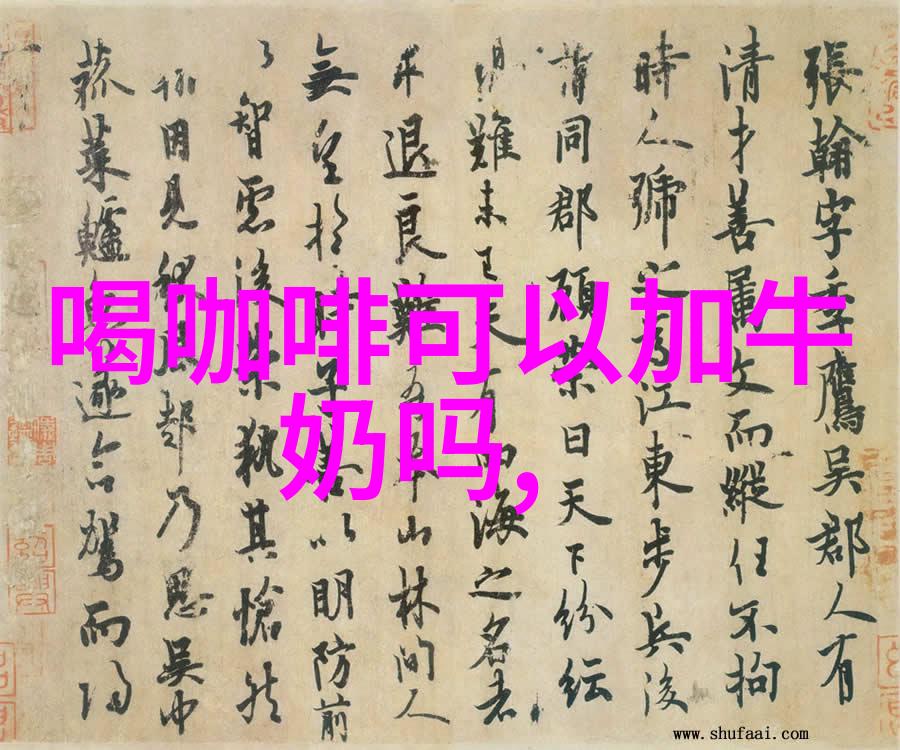 喝咖啡可以加牛
奶吗,
張翰字季鷹吳郡人有
清才善屬文而縱任不拘
時人號之為江東步兵後
同郡顧榮曰天下紛紜
難未已夫有四海之名者
求退良難吾本山林間人
無望於時子善以明防前
智慮後榮執其愴然
因見秋風起乃思吳中
菰菜鱸魚遂命駕而歸
www.shufaai.com